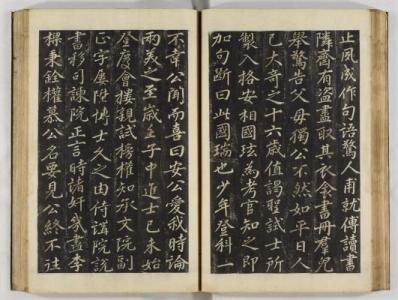 止夙成作句語驚人甫就傅讀書
隣齋有盜盡取其衣衾書冊羣兒
舉驚告父母獨公不然如平日人
已大奇之十六歲値謁聖試士所
製入格安相國玹爲考官知之即
加句斷曰此國瑞也少年登科一
不幸公聞而喜曰安公愛我時論
兩美之至歲壬子中進士己未始
登慶會樓親試榜權知承文院副
正字屢陞博士久之由侍講院說
書移司諫院正言時諸奸盡李
樑秉銓權慕公名要見公終不往